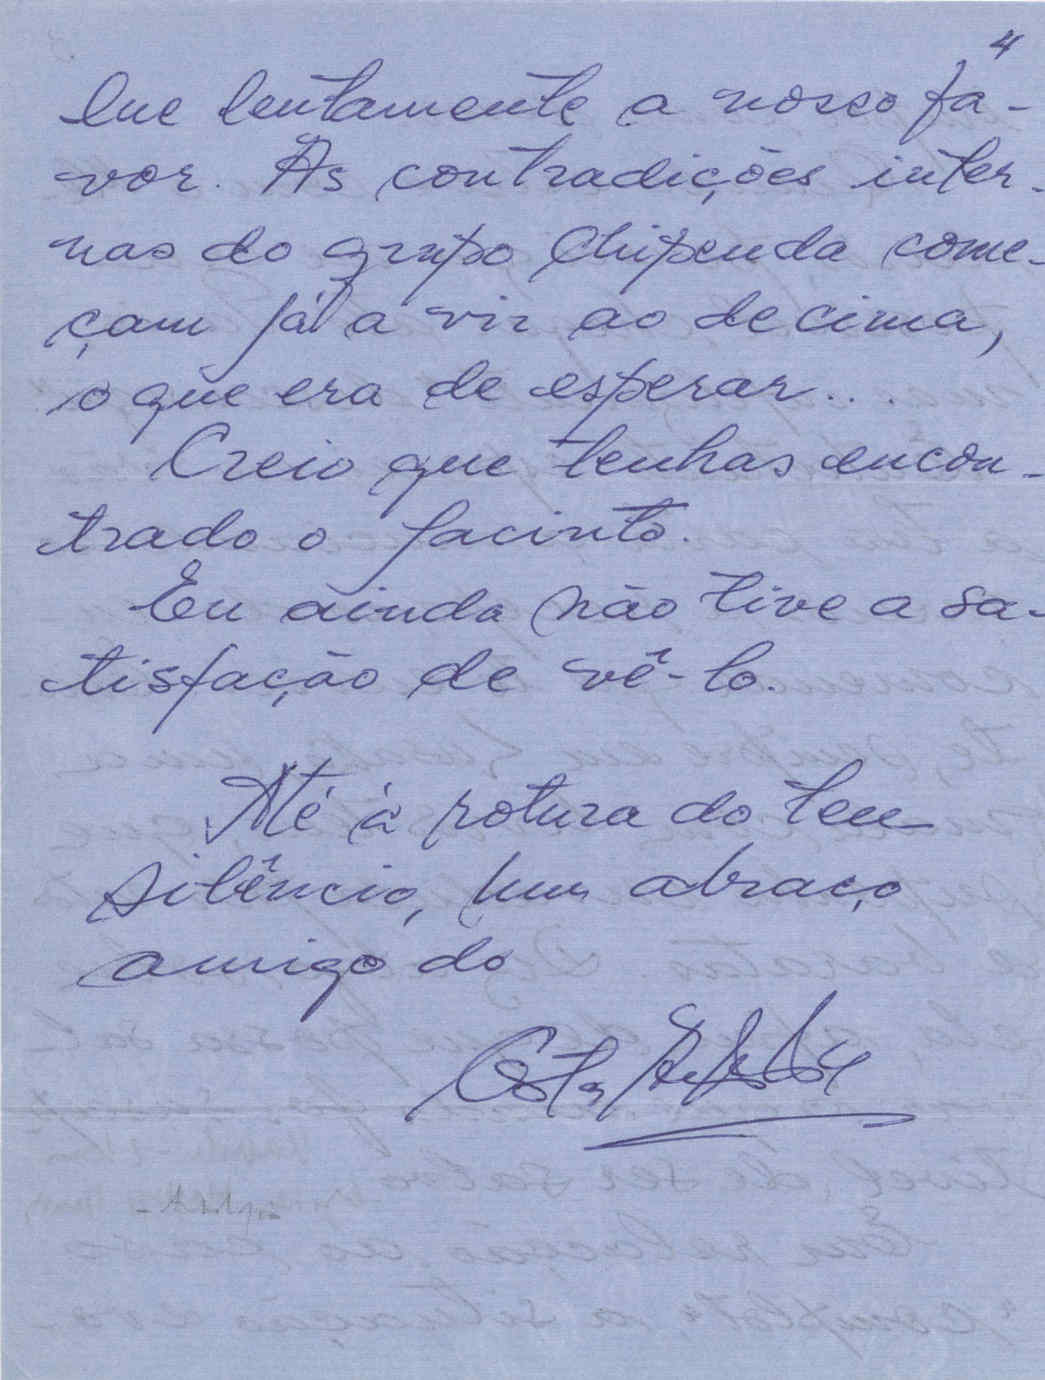 4
lue lentamente a nosso fa-
vor. As contradições inter-
nas do grupo Chipenda come-
çam já a vir ao de cima,
o que era de esperar...
Creio que tenhas encon-
trado o Jacinto.
Eu ainda não tive a sa-
tisfação de vê-lo.
Até à rotura do teu
silêncio, um abraço
amigo do
Costa